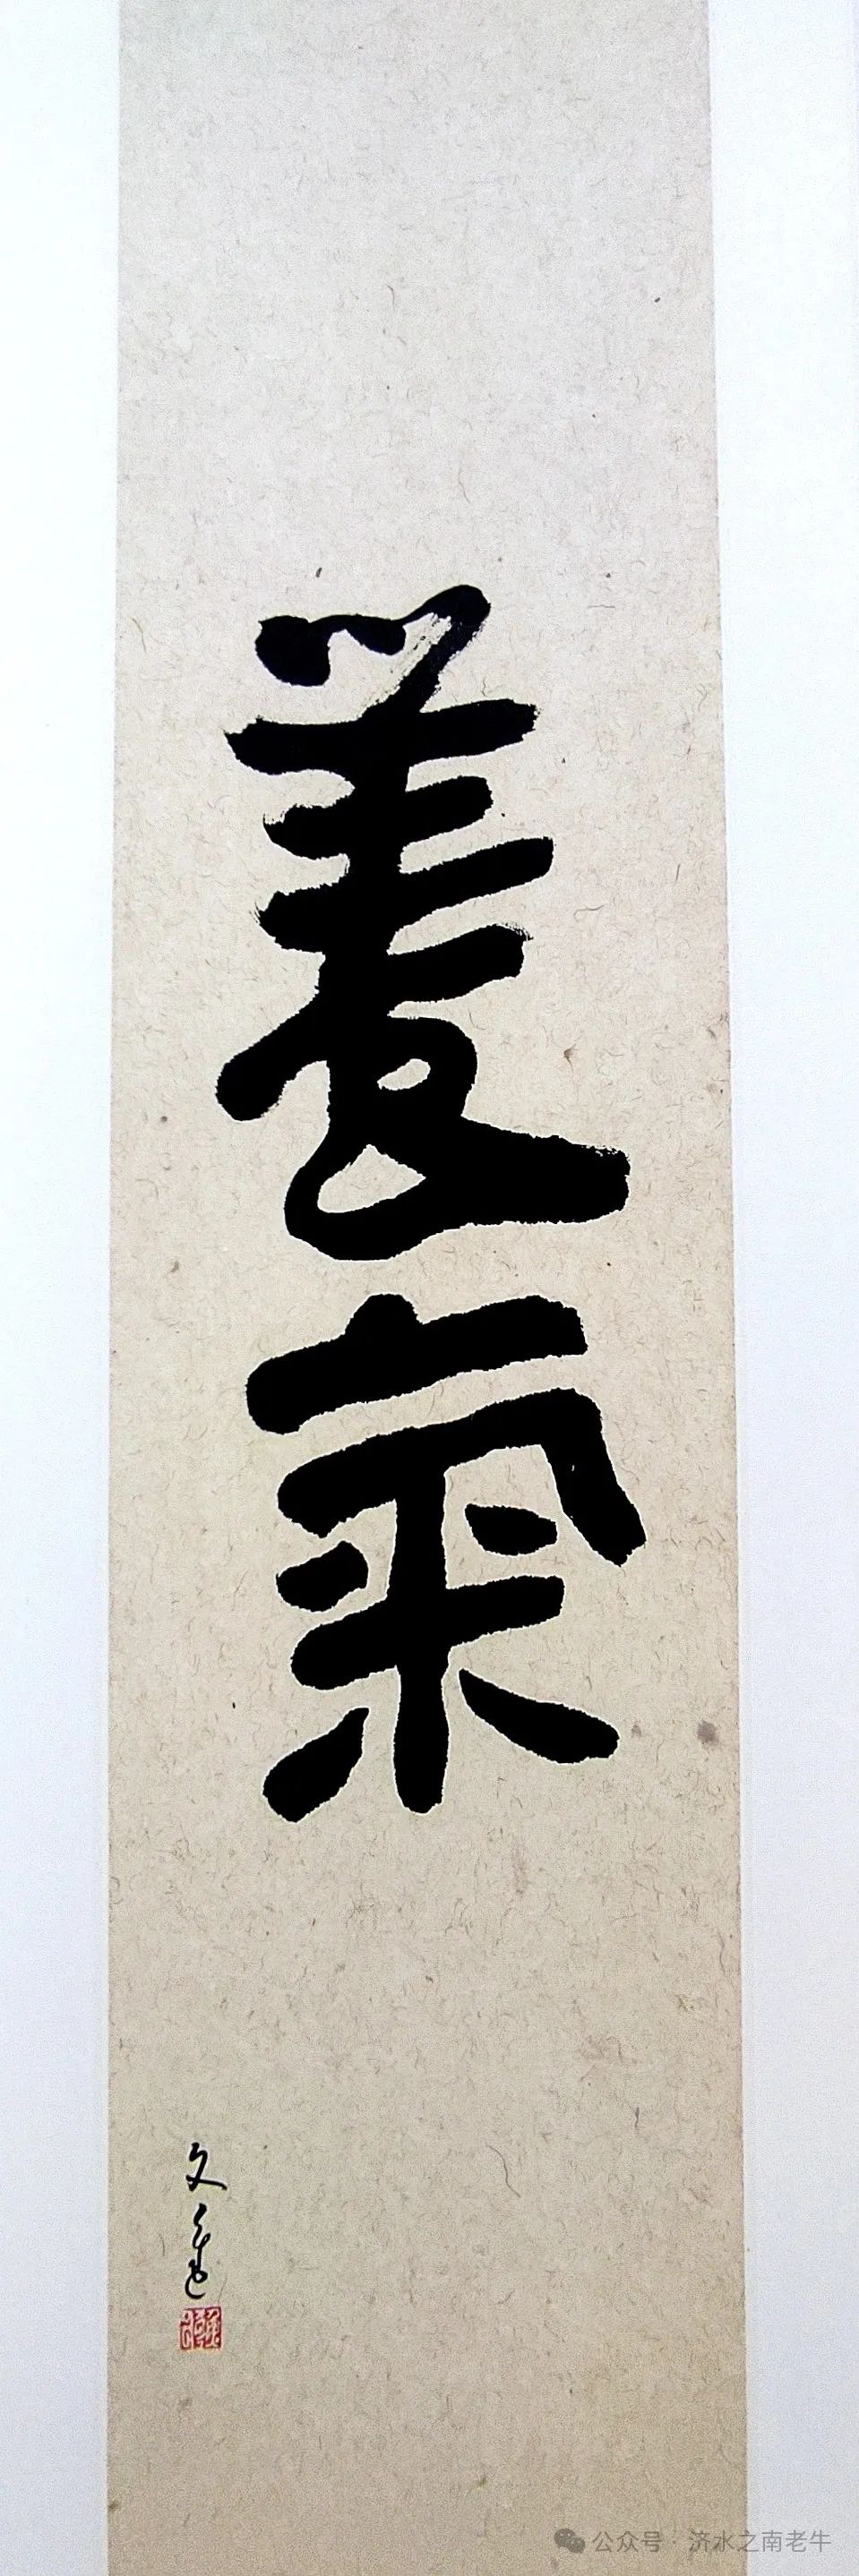 養氣
公众号 · 济水之南老牛